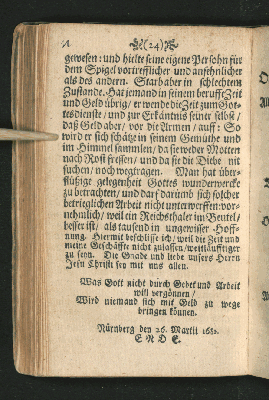 (24)
gewesen: und hielte seine eigene Person für
dem Spigel vortrefflicher und ansehnlicher
als des andern. Star haber in schlechtem
Zustande. Hat jemand in seinem beruff Zeit
und Geld übrig/ er wende die Zeit zum Got-
tesdienste/ und zur Erkäntnis seiner selbst/
daß Geld aber/ vor die Armen/ auff: So
wird er sich schätze in seinem Gemüthe und
im Himmel sammlen/ da sie weder Motten
nach Rost fressen/ und da sie die Diebe nit
suchen/ noch wegtragen. Man hat über-
flüßige gelegenheit Gottes wunderwercke
zu betrachten/ und darf darumb sich solcher
betrieglichen Arbeit nicht unterwerffen: vor-
nehmlich/ weil ein Reichsthaler im Beutel/
besser ist/ als tausend in ungewisser Hoff-
nung. Hiermit beschliese ich/ weil die Zeit und
meine Geschäffte nicht zulassen/ weitläufftiger
zu seyn. Die Gnade und liebe unsers Herrn
Jesu Christi sey mit uns allen.
Was Gott nicht durch Gebet und Arbeit
will vergönnen/
Wird niemand sich mit Geld zu wege
bringen können.
Nürnberg den 26. Martii
E N D E.